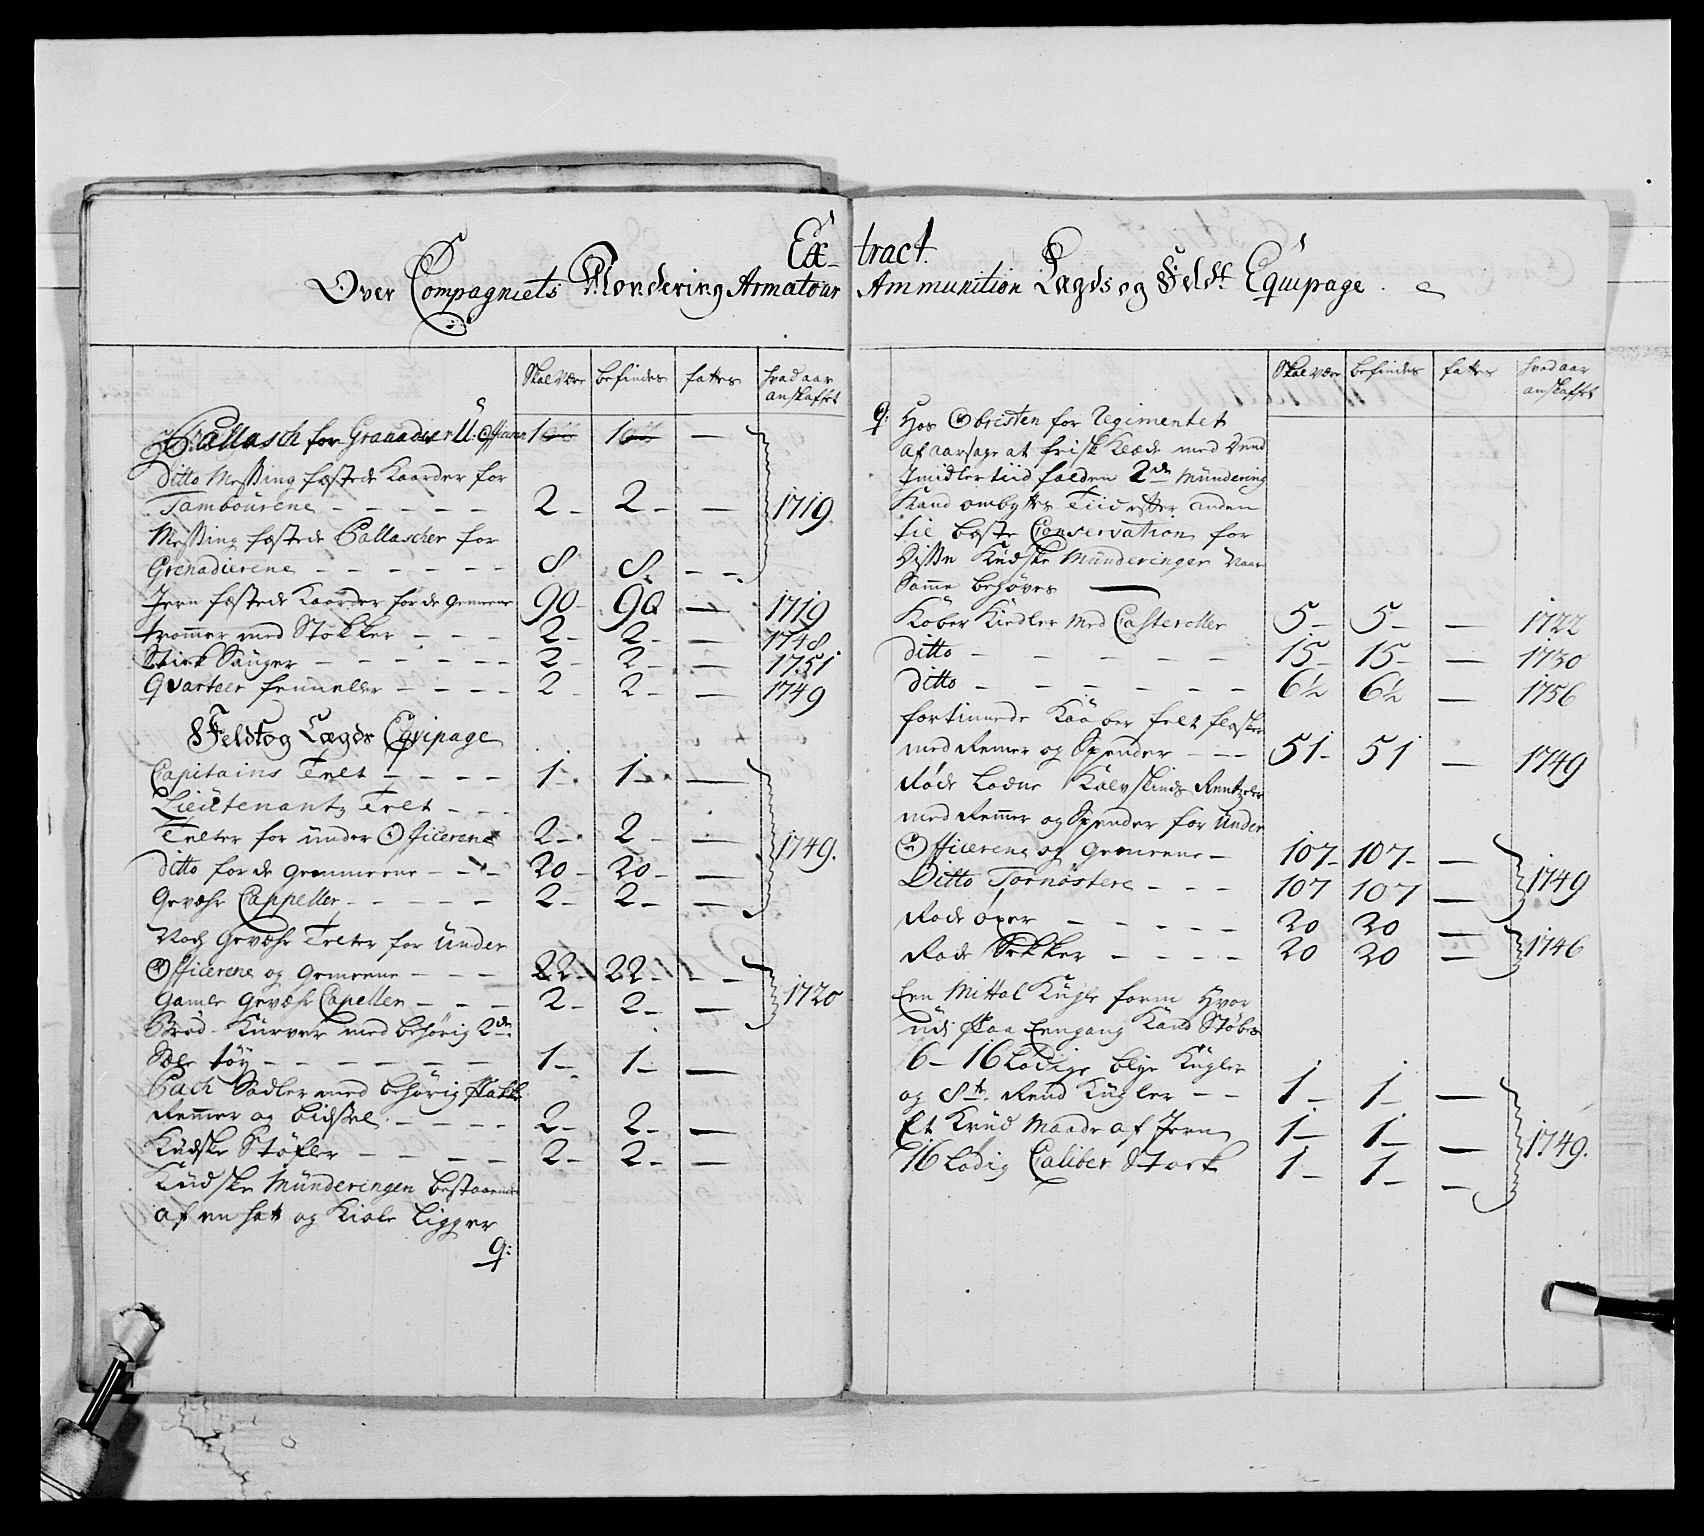 Ex- tract.
Over Compagniets Mondering Armatour Ammunition Lægds og Feldt Equipage
Skal være befindes fattes hvad aar anskaffet
Pallasch for Granadeer U: Officeren 1 1 —
Ditto Messing fæstede Kaarder for
Tambourene - - - - - 2 - 2 - — 1719.
Messing fæstede Pallascher for
Grenadierene - - - - - - 8. 8. - -
Jern fæstede Kaarder for de Gemeene 90- 90 — 1719
trommer med Stokker - - - 2- 2- — 1748.
Stick Tänger - - - - - - 2- 2- — 1751
Quarteer - - - - 2 2- — 1749
Feldt og Lægds Equipage
Capitains Telt - - - - 1- 1- —
Lieutenants Telt - - -
Telter for under Officerene 2- 2- — 1749.
ditto for de Gemeene - - - 20- 20- —
Gevæhr Cappeller - - - - - 2- 2- —
Noch Gevæhr Telter for Under
Officerene og Gemeene - - - 22- 22- - -
Gamle Gevæhr Capeller - - - 2- 2- — 1720
Brød-Kurver med behørig 2de
Sæle tøy - - - - - - 1- 1- —
Pack Sadler med behørig
Remmer og bidsel - - - - 2- 2- —
Kudske Støfler - - - - 2- 2- —
Kudske Münderingen bestaaende
af en hatt og Kiole ligger
q:
Skal være befindes fattes hvad aar anskaffet
q: Hos Obristen for Regimentet
af aarsage at frisk Klæde med dend
Imidlertiid falden 2de Mündering
Kand ombyttes Tiid efter anden
til beste Conservation for
disse Kudske Münderinger naar
Samme behøves —
Kober Kiedler med Casteroller 5- 5- — 1722
ditto - - - - - - 15- 15- — 1730
ditto - - - - - - 6½ 6½ — 1756
fortinnede Kaaber felt flasker
med Remer og Spender - - - 51- 51 — 1749
Røde Lodne Kalvskinds Rentzeler
med Remmer og Spender for Under
Officerene og Gemeene - 107- 107- —
Ditto Tornöstere - - - 107 107 — 1749
Rode öxer - - - - - 20 20 —
Rode Sekker - - - - 20 20 — 1746
Een Mittal Kugle form hvor
udi paa Eengang Kand Støbes
6- 16 Lodige blye Kugler
og 8te Rend Kugler - - 1- 1- —
Et Krud Maade af Jern 1- 1- — 1749.
16 Lodig Caliber Stock 1- 1- —